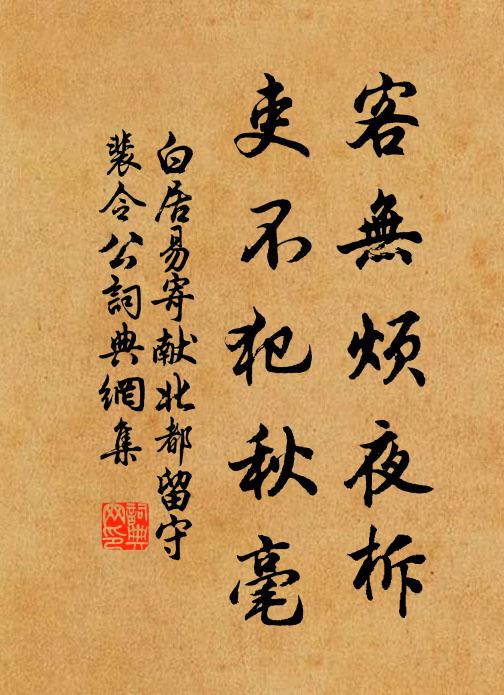 客無煩夜柝
吏不犯秋毫
白居易寄献北都留守
裴令公詞典網集
詞典
网印